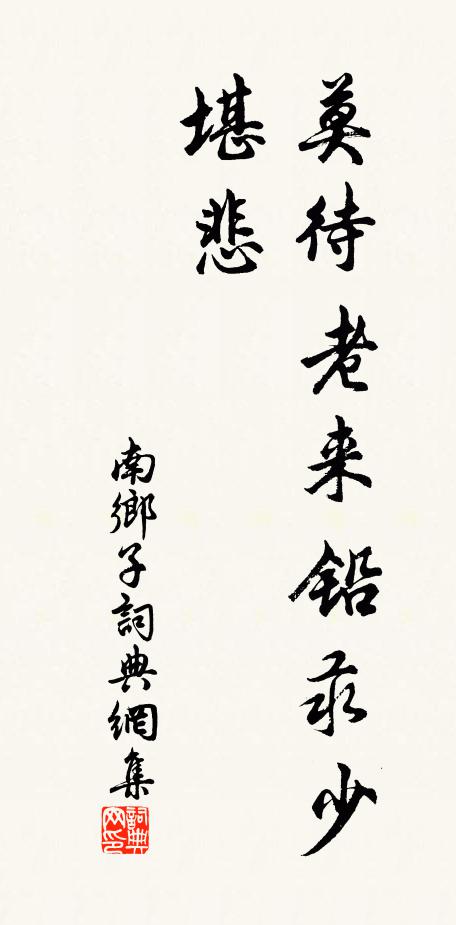 莫待老来鉛汞少
堪悲
南鄉子詞典網集
詞典
网印